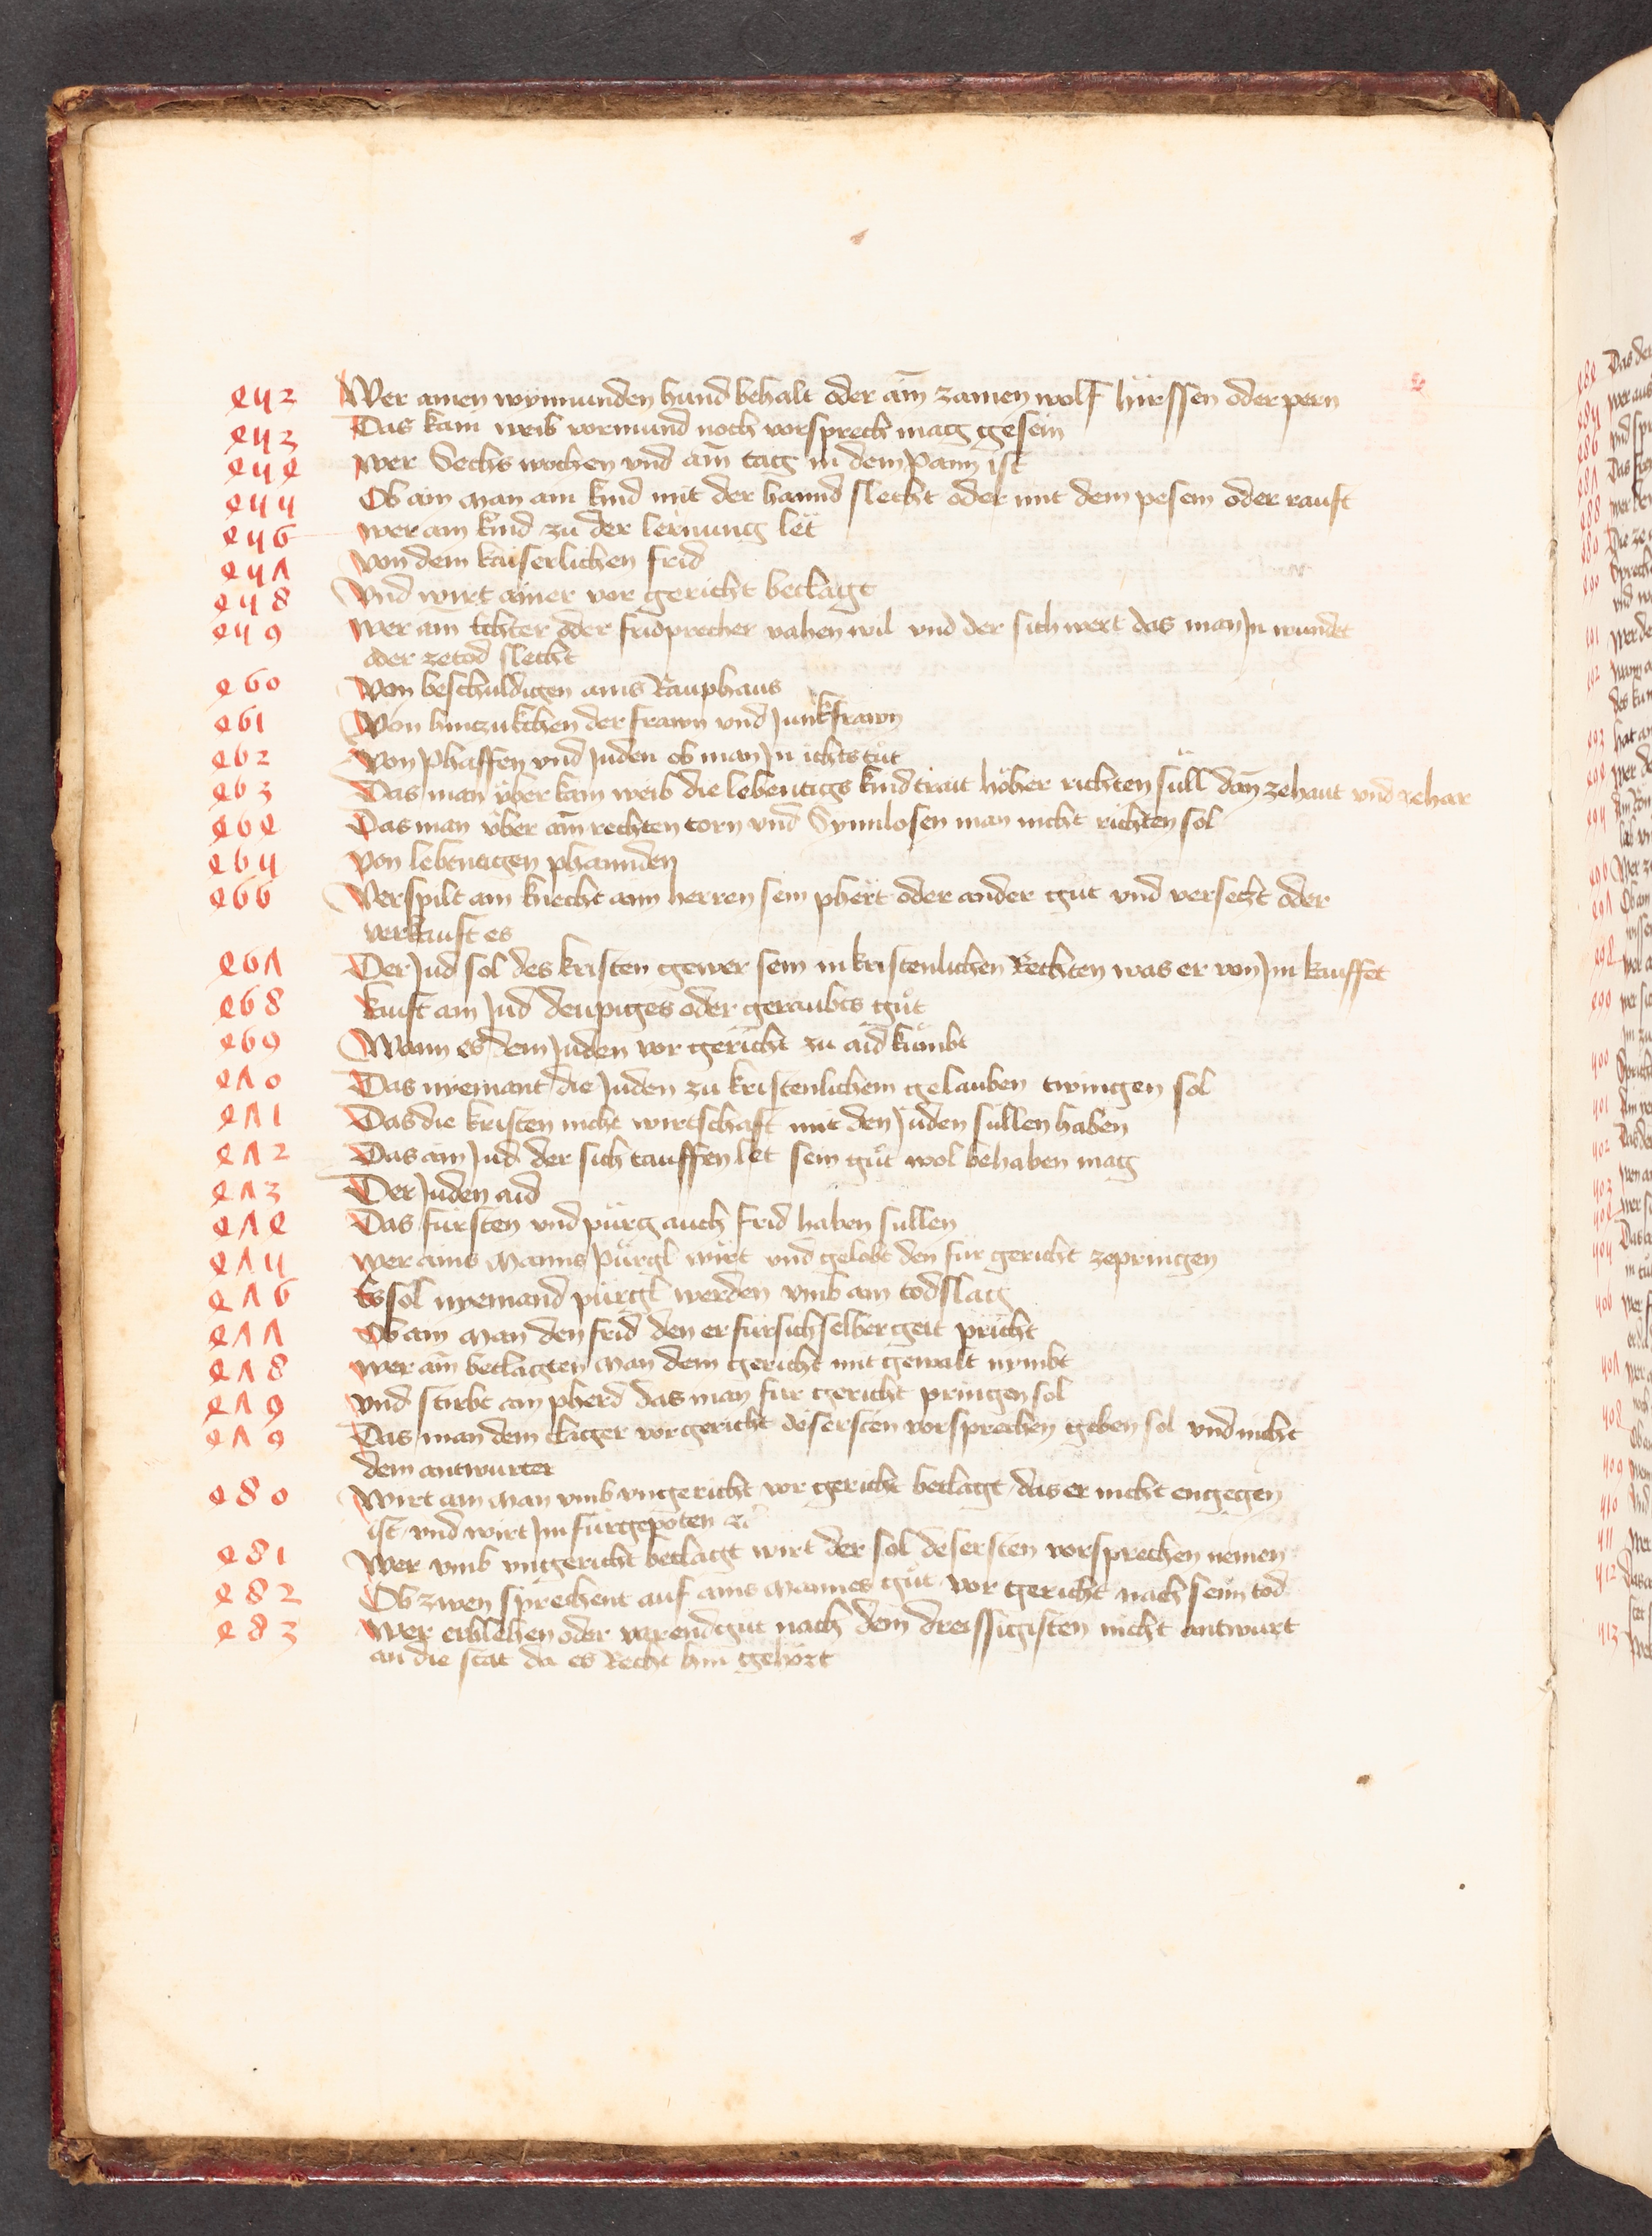 452 Wer ainen wynnunden hund behalt oder ain zamen wolf hirssen oder pern
453 Das kain weib vormund noch vorsprech mag gesein
454 wer Sechs wochen vnd ain tag in dem Pann ist
455 Ob ain man ain kind mit der hannd slecht oder mit dem pesem oder rauft
456 wer ain kind zu der lernung let
457 von dem kaiserlichen frid
458 Vnd wirt ainer vor gericht beclagt
459 wer ain echter oder fridprecher vahen wil vnd der sich wert das man Jn wundet
oder zetod slecht
460 Von beschuldigen ains Rauphaus
461 Von hinczukchen der frawn vnd Junkfrawn
462 von Phaffen vnd Juden ob man Jn ichts tůt
463 Das man vber kain weib die lebentigs kind trait höher richten süll dan zehaut vnd zehar
464 Das man vber ain rechten torn vnd Synnlosen man nicht richten sol
465 von lebentigen phannden
466 Verspilt ain knecht aim herren sein phert oder ander gůt vnd versetzt oder
verkauft es
467 Der Jud sol des kristen gewer sein in kristenlichen Rechten was er von Jm kauffet
468 kauft ain Jud deupiges oder geraubts gůt
469 Wann es dem Juden vor gericht zu aid kumbt
470 Das nyemant die Juden zu kristenlichem gelauben twingen sol
471 Das die kristen nicht wirtschaft mit den Juden süllen haben
472 Das ain Jud der sich tauffen let sein gůt wol behaben mag
473 Der Juden aid
474 Das fürsten vnd pürg auch frid haben süllen
475 wer ains Manns Pürgl wirt vnd gelobt den für gericht zepringen
476 Es sol nyemand pürgl werden vmb ain todslag
477 Ob ain man den frid den er für sich selber geit pricht
478 wer ain beclagten man dem gericht mit gewalt nymbt
479 vnd stirbt ain pherd das man für gericht pringen sol
479 Das man dem clager vor gericht des ersten vorsprechen geben sol vnd nicht
dem antwurter
480 Wirt ain man vmb vngericht vor gericht beclagt das er nicht engegen
ist vnd wirt Jm fürgepoten
481 Wer vmb vngericht beclagt wirt der sol des ersten vorsprechen nemen
482 Ob zwen sprechent auf ains mannes gůt vor gericht nach seim tod
483 Wer erblehen oder varendgůt nach dem dreissigisten nicht antwurt
an die stat da es Recht hin gehört